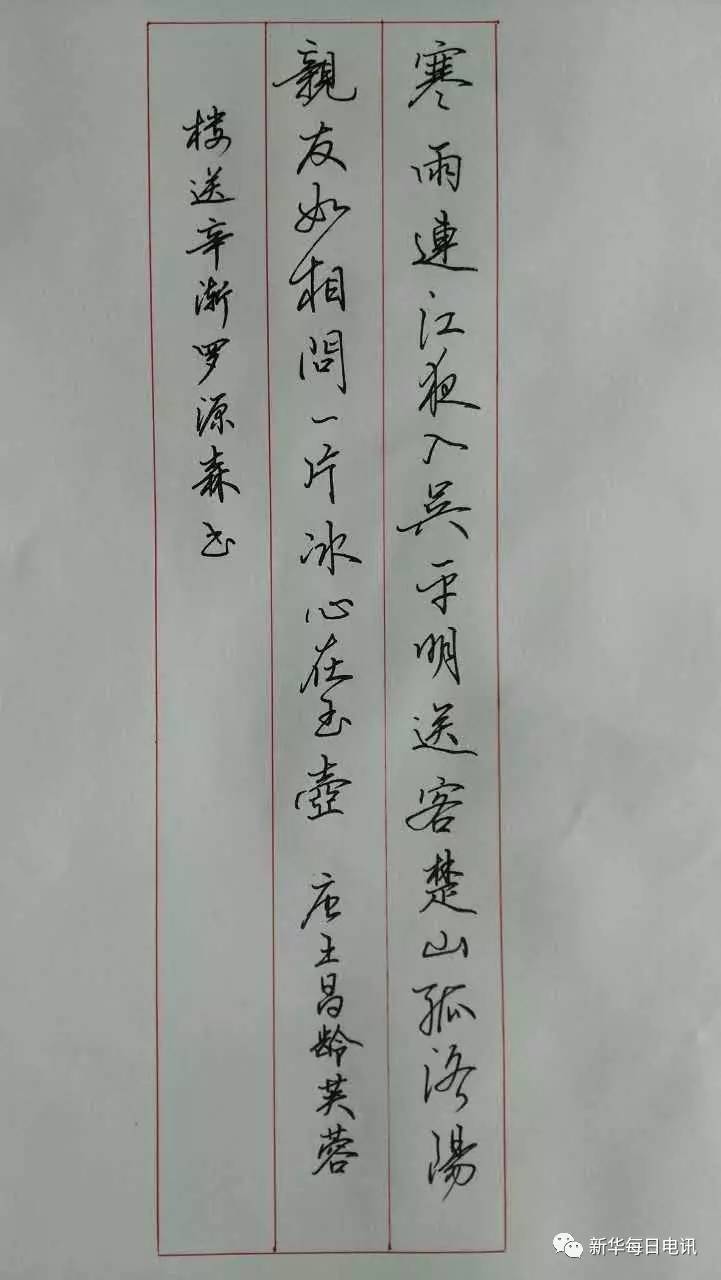 寒雨連江夜入吳平明送客楚山孤洛陽
親友如相問一片冰心在玉壺 唐王昌龄芙蓉
楼送辛渐罗源森书
新华每日电讯